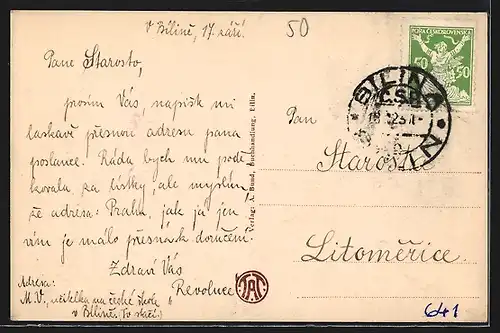 V Bílině, 17. září.
50
Pane Starosto,
prosím Vás, napište mi
laskavě přesnou adresu pana
poslance. Ráda bych mu podě-
kovala za lístky, ale myslím,
že adresa: Praha, jak ja jen
vím je málo přesná k doručení.
Zdraví Vás
Revolucí!
Adresa:
M. V., učitelka na české škole
v Bílině. (To stačí.)
Verlag: A. Bund, Buchhandlung, Bilin.
TAC
POŠTA ČESKOSLOVENSKÁ
50 50
BILINA
ČSR
Pan
Starosta
Litoměřice.
641